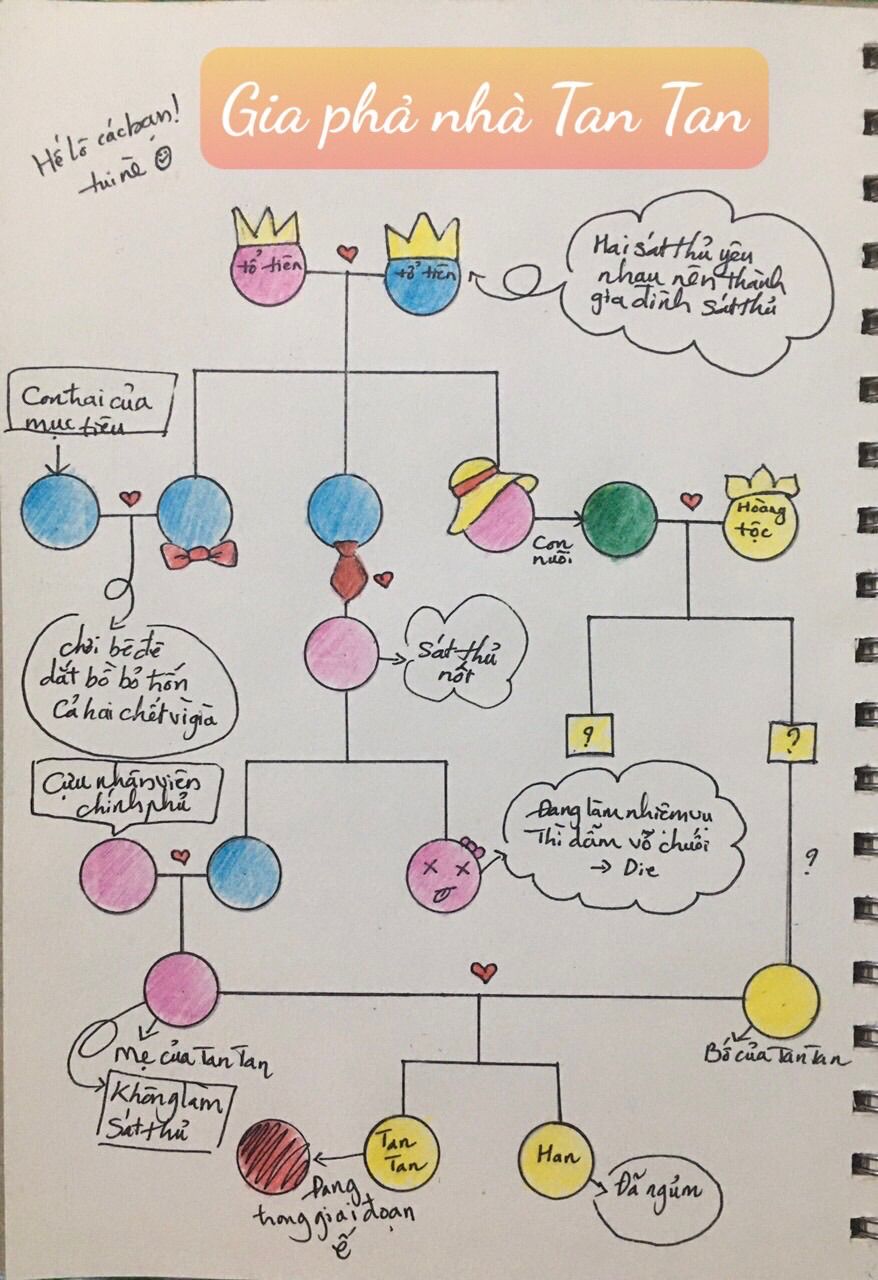 Gia phả nhà Tan Tan
Hế lô các bạn!
tui nè
tổ tiên
tổ tiên
Hai sát thủ yêu
nhau nên thành
gia đình sát thủ
Con trai của
mục tiêu
Hoàng
tộc
Con
nuôi
chơi bê đê
dắt bồ bỏ trốn
Cả hai chết vì già
Sát thủ
nốt
?
?
Cựu nhân viên
chính phủ
Đang làm nhiệm vụ
Thì dẫm vỏ chuối
→ Die
?
Mẹ của Tan Tan
Bố của Tan Tan
Không làm
Sát thủ
Tan
Tan
Han
Đang
trong giai đoạn
ế
Đã ngủm